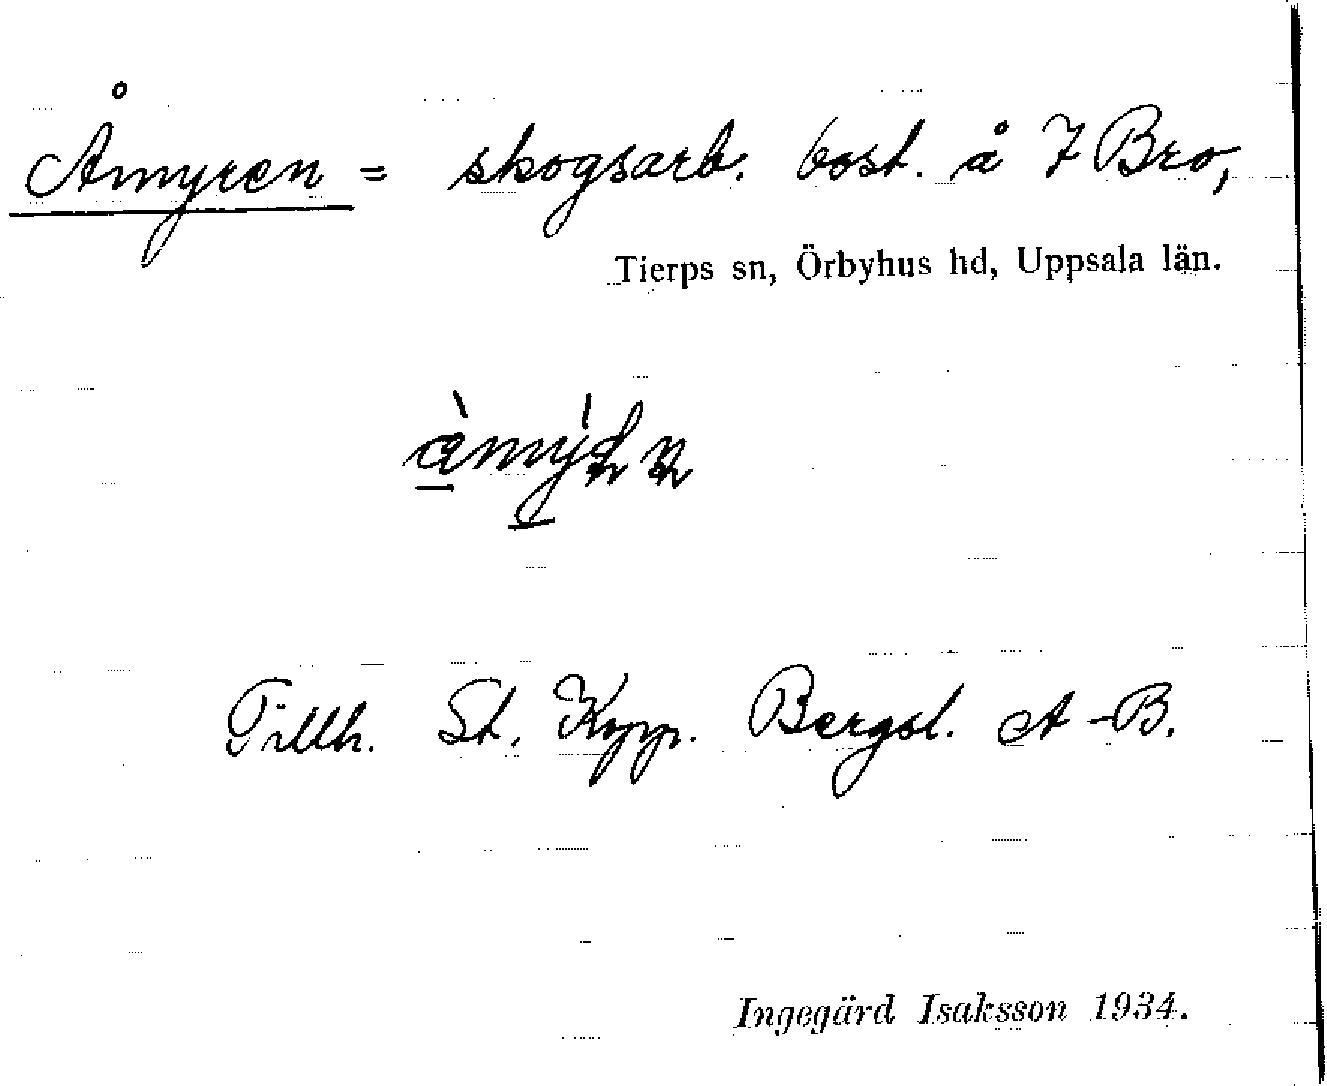 Åmyren = skogsarb. bost. å 7 Bro,
Tierps sn, Örbyhus hd, Uppsala län.
Tillh. St. Kopp. Bergsl. A-B.
Ingegärd Isaksson 1934.